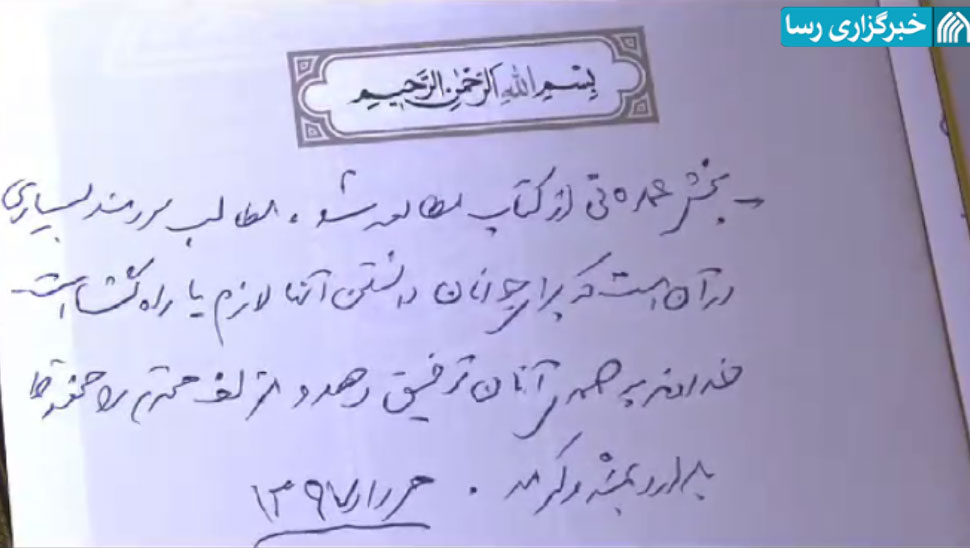 خبرگزاری رسا
بِسْمِ اللهِ الرَّحْمٰنِ الرَّحِیمِ
بخش عمده‌ئی از کتاب مطالعه شد، مطالب سودمند بسیاری
در آن است که برای جوانان دانستن آنها لازم یا راه‌گشا است
خداوند به همه‌ی آنان توفیق دهد و مؤلف محترم را محفوظ
بدارد بمنّه و کرمه.
مرداد ۱۳۹۷